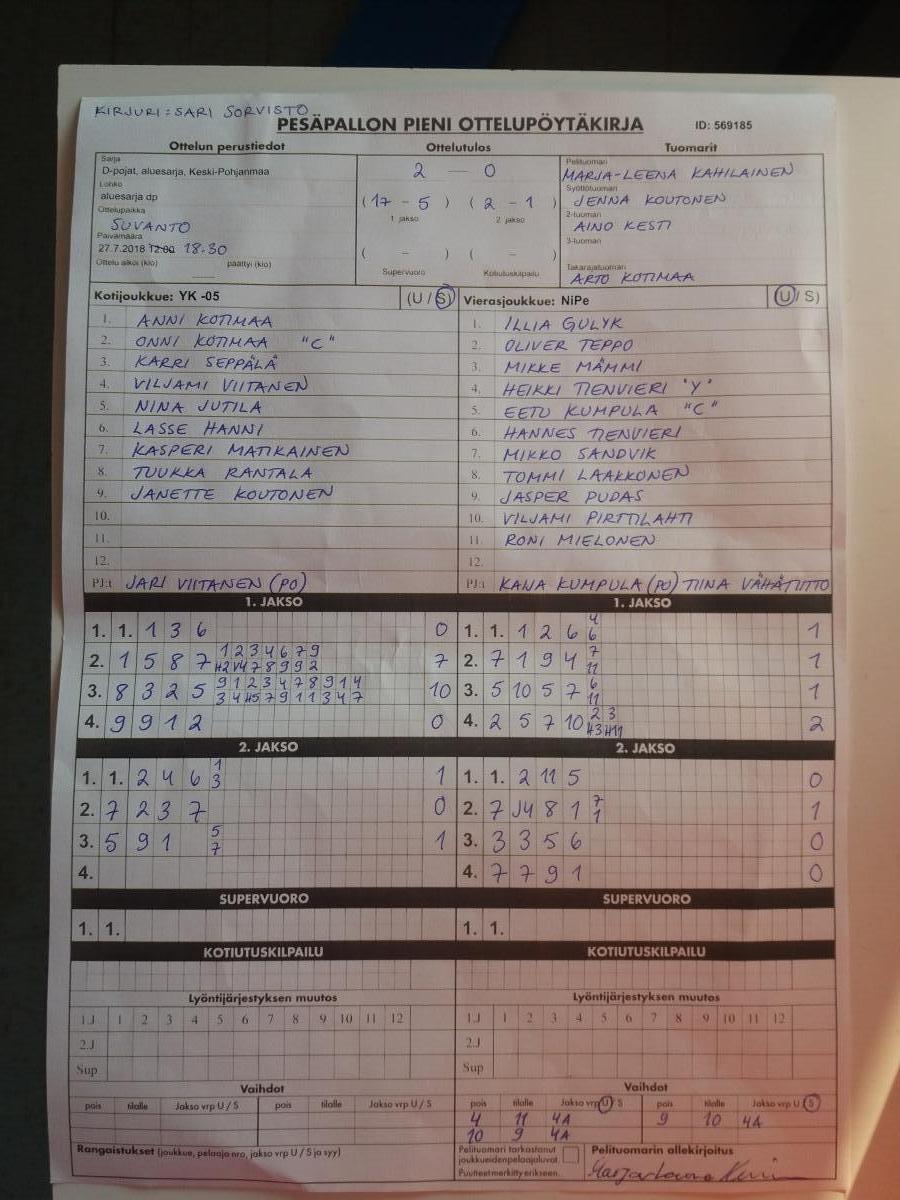 KIRJURI: SARI SORVISTO
PESÄPALLON PIENI OTTELUPÖYTÄKIRJA ID: 569185
Ottelun perustiedot Ottelutulos Tuomarit
Sarja
D-pojat, aluesarja, Keski-Pohjanmaa
Lohko
aluesarja dp
Ottelupaikka
SUVANTO
Päivämäärä
27.7.2018 12:00 18.30
Ottelu alkoi (klo) päättyi (klo)
2 — 0
(17 - 5) (2 - 1)
1 jakso 2 jakso
( - ) ( - )
Supervuoro Kotiutuskilpailu
Pelituomari
MARJA-LEENA KAHILAINEN
Syöttötuomari
JENNA KOUTONEN
2-tuomari
AINO KESTI
3-tuomari
Takarajatuomari
ARTO KOTIMAA
Kotijoukkue: YK -05 (U / S) Vierasjoukkue: NiPe (U / S)
1. ANNI KOTIMAA 1. ILLIA GULYK
2. ONNI KOTIMAA "C" 2. OLIVER TEPPO
3. KARRI SEPPÄLÄ 3. MIKKE MÄMMI
4. VILJAMI VIITANEN 4. HEIKKI TIENVIERI "Y"
5. NINA JUTILA 5. EETU KUMPULA "C"
6. LASSE HANNI 6. HANNES TIENVIERI
7. KASPERI MATIKAINEN 7. MIKKO SANDVIK
8. TUUKKA RANTALA 8. TOMMI LAAKKONEN
9. JANETTE KOUTONEN 9. JASPER PUDAS
10. 10. VILJAMI PIRTTILAHTI
11. 11. RONI MIELONEN
12. 12.
PJ:t JARI VIITANEN (PO) PJ:t KAIJA KUMPULA (PO) TIINA VÄHÄTIITTO
1. JAKSO 1. JAKSO
1. 1. 1 3 6 0 1. 1. 1 2 6 6 4 6 1
2. 1 5 8 7 1 2 3 4 6 7 9 7 2. 7 1 9 4 7 11 1
3. 8 3 2 5 9 1 2 3 4 7 8 9 1 4 10 3. 5 10 5 7 6 11 1
4. 9 9 1 2 0 4. 2 5 7 10 2 3 2
2. JAKSO 2. JAKSO
1. 1. 2 4 6 1 3 1 1. 1. 2 11 5 0
2. 7 2 3 7 0 2. 7 J4 8 1 7 1 1
3. 5 9 1 5 7 1 3. 3 3 5 6 0
4. 4. 7 7 9 1 0
SUPERVUORO SUPERVUORO
1. 1. 1. 1.
KOTIUTUSKILPAILU KOTIUTUSKILPAILU
Lyöntijärjestyksen muutos Lyöntijärjestyksen muutos
1.J 1 2 3 4 5 6 7 8 9 10 11 12 1.J 1 2 3 4 5 6 7 8 9 10 11 12
2.J 2.J
Sup Sup
Vaihdot Vaihdot
pois tilalle Jakso vrp U / S pois tilalle Jakso vrp U / S pois tilalle Jakso vrp U / S pois tilalle Jakso vrp U / S
4 11 4A 9 10 4A
10 9 4A
Rangaistukset (joukkue, pelaaja nro, jakso vrp U / S ja syy)
Pelituomari tarkastanut
joukkueidenpelaajaluvat.
Puutteet merkitty erikseen.
Pelituomarin allekirjoitus